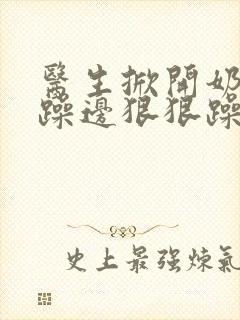 醫生掀開奶
躁邊狠狠躁
史上最強煉氣